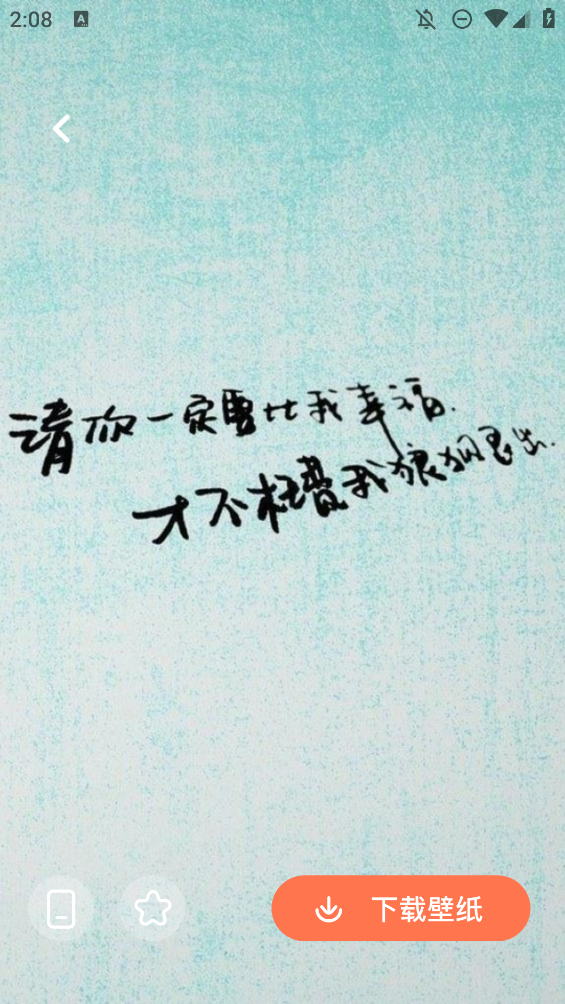 2:08 A
请你一定要比我幸福.
才不枉费我狼狈退出.
下载壁纸